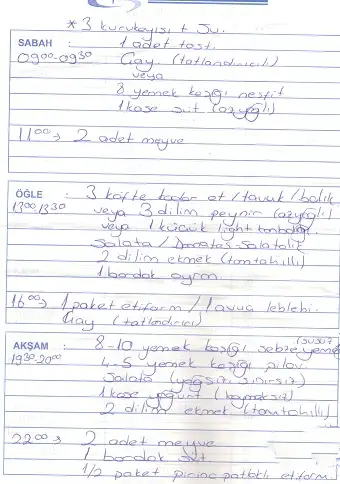 * 3 kurukayısı + Su.
SABAH : 1 adet tost.
09⁰⁰-09³⁰ Çay. (tatlandırıcılı)
veya
8 yemek kaşığı nesfit
1 kase süt (az yağlı)
11⁰⁰ → 2 adet meyve
ÖĞLE : 3 köfte kadar et / tavuk / balık
13⁰⁰-13³⁰ veya 3 dilim peynir (az yağlı)
veya 1 küçük light tonbalığı.
Salata / Domates-Salatalık
2 dilim ekmek (tam tahıllı)
1 bardak ayran.
16⁰⁰ → 1 paket etiform / 1 avuç leblebi.
Çay (tatlandırıcı)
AKŞAM : 8-10 yemek kaşığı sebze yemeği
19³⁰-20⁰⁰ 4-5 yemek kaşığı pilav.
Salata (yağsız, sınırsız)
1 kase yoğurt (kaymaksız)
2 dilim ekmek (tam tahıllı)
22⁰⁰ → 2 adet meyve
1 bardak süt
1/2 paket pirinç patlaklı etiform